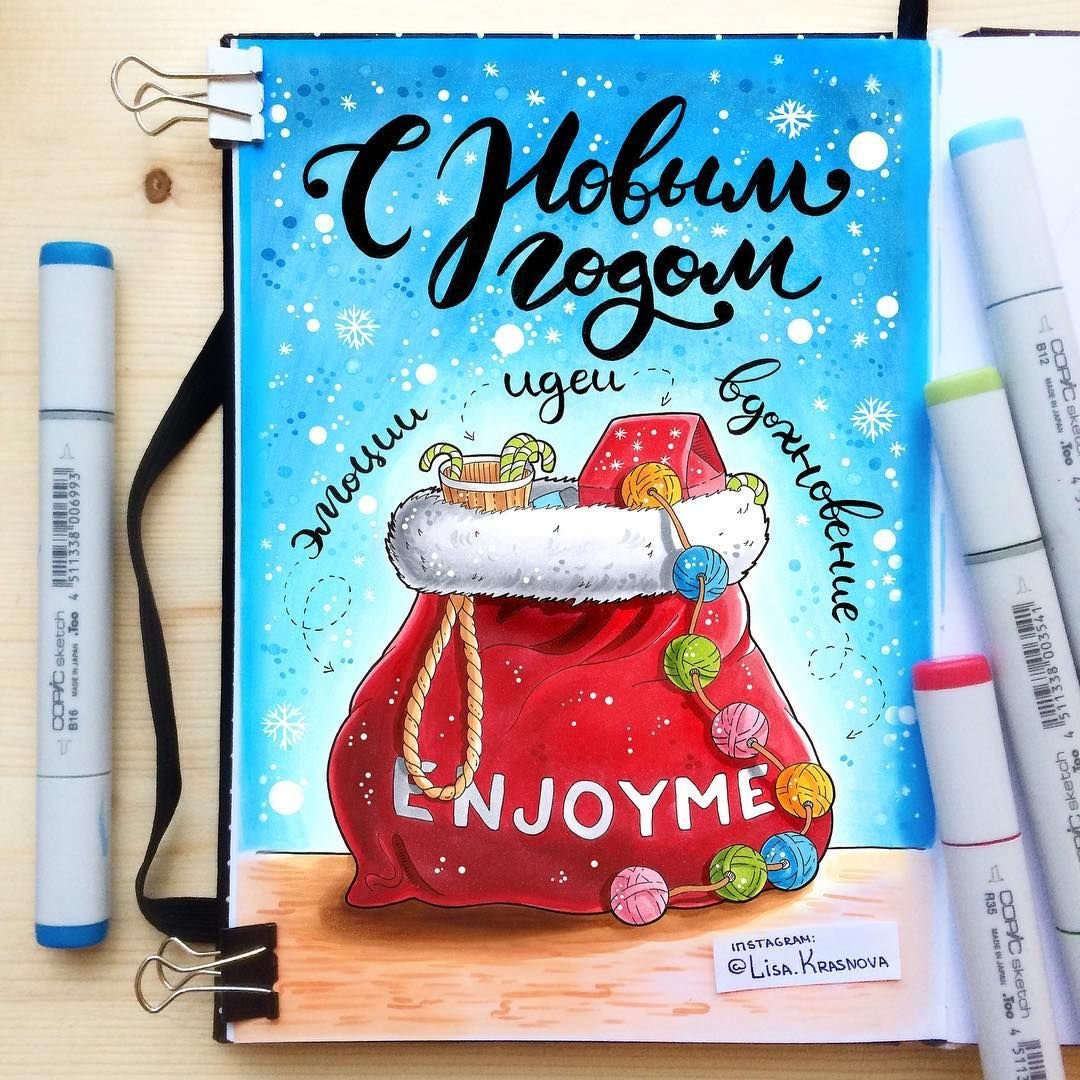 С Новым
годом
эмоции
идеи
вдохновение
ENJOYME
INSTAGRAM:
@LISA.KRASNOVA
COPIC sketch .Too
B16 MADE IN JAPAN
4 511338 006993
COPIC sketch .Too
B12 MADE IN JAPAN
COPIC sketch .Too
4 511338 003541
COPIC sketch .Too
R35 MADE IN JAPAN